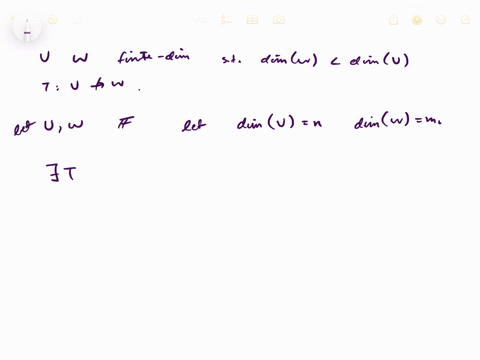 U W finite-dim s.t. dim(W) < dim(U)
T: U ↛ W.
let U, W 𝔽 let dim(U) = n dim(W) = m.
∃ T